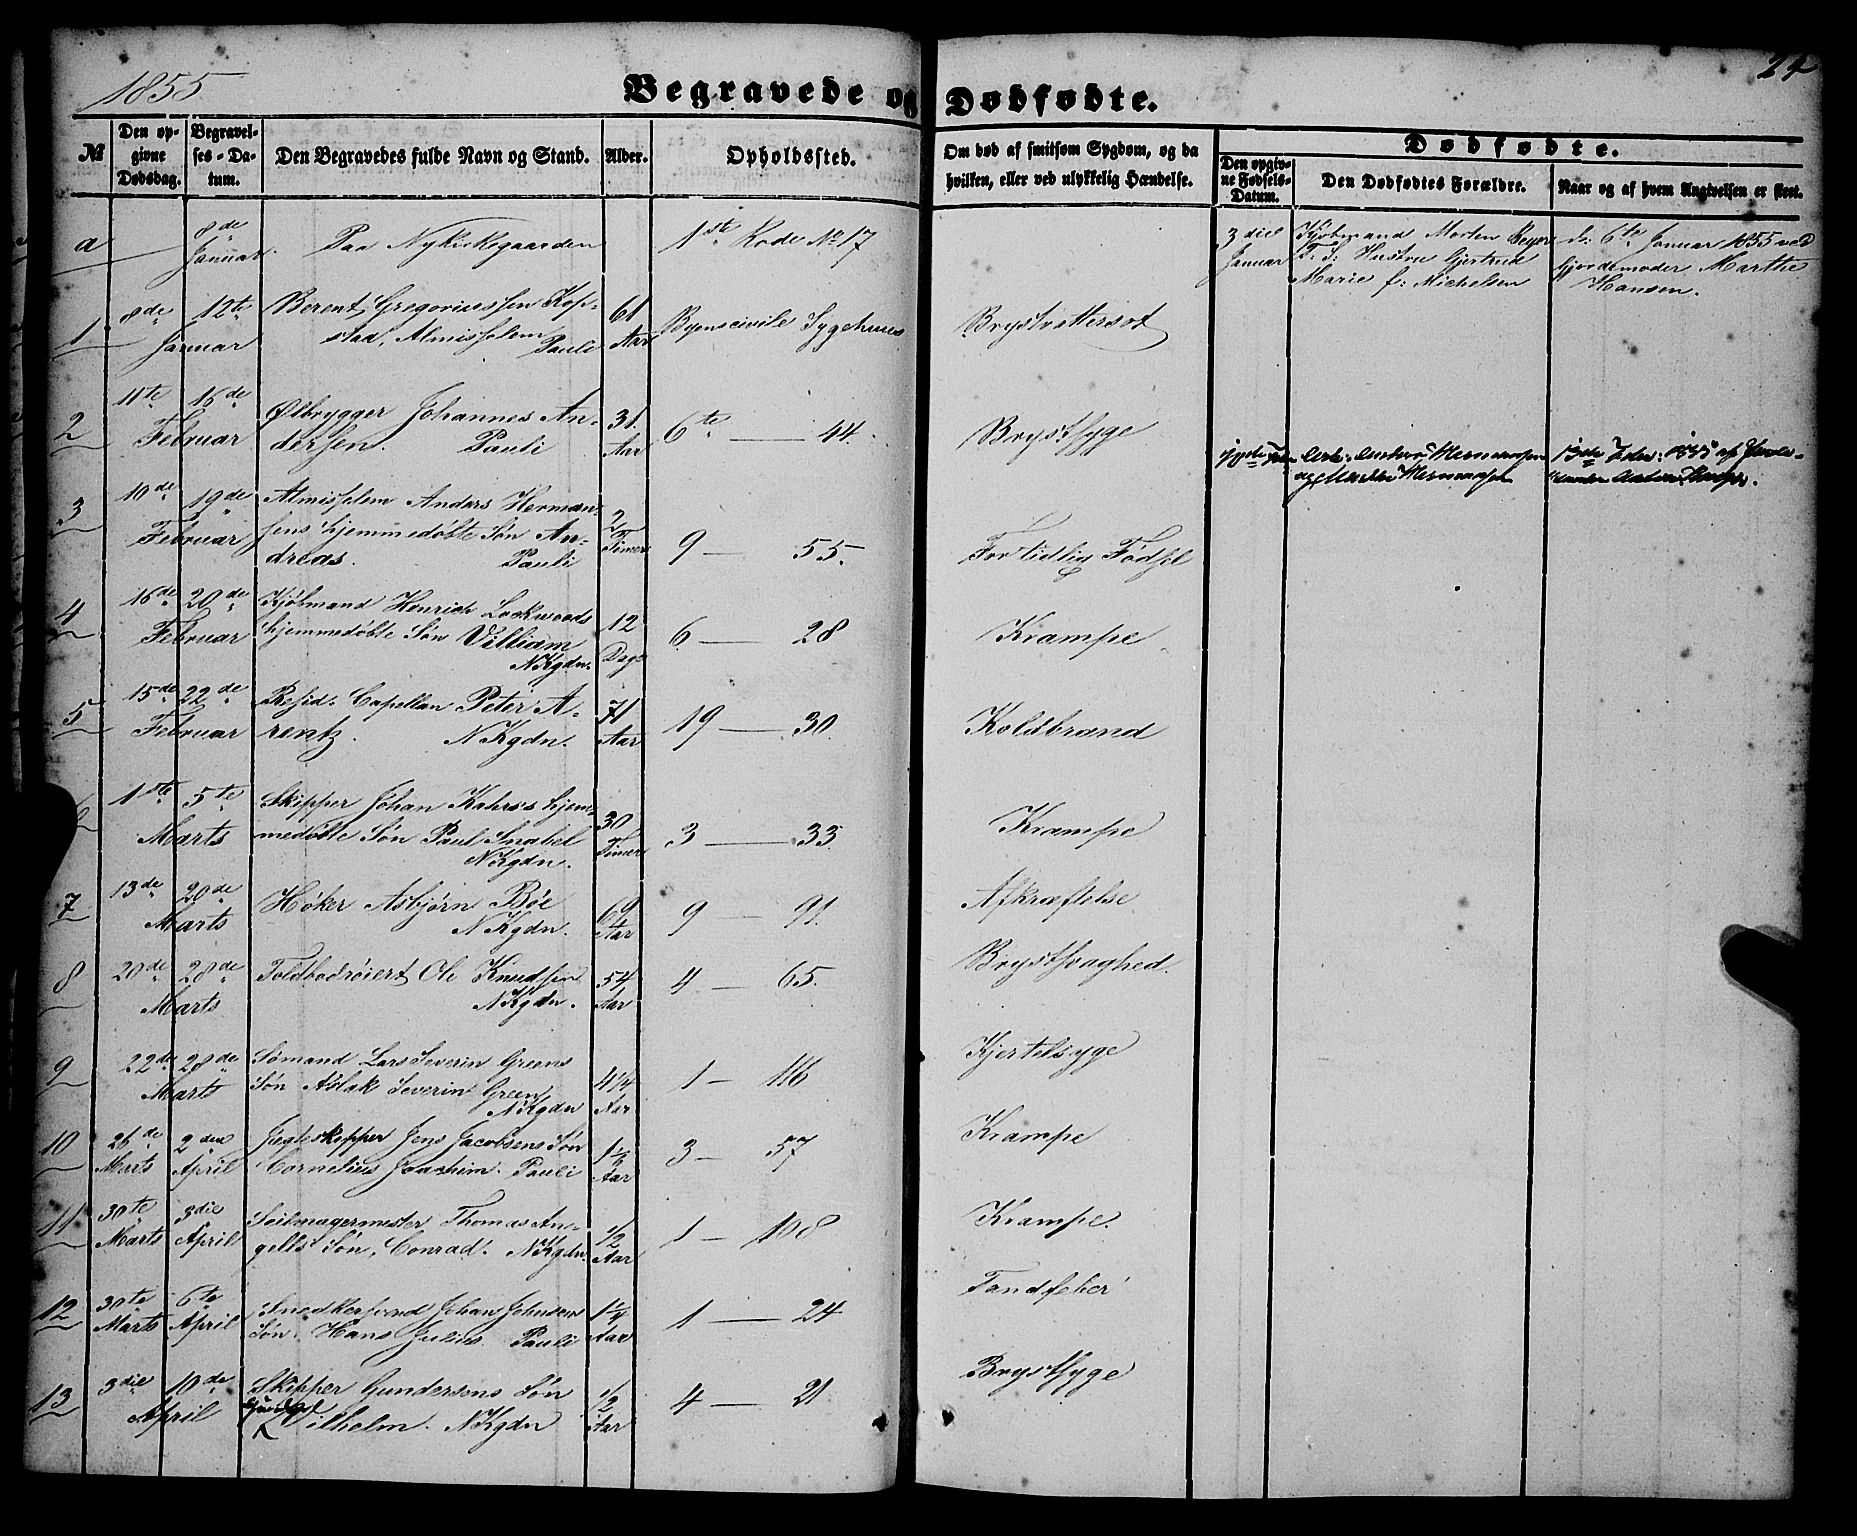 1855
Begravede og Dødfødte.
24
№
Den opgivne Dødsdag.
Begravelses-Datum.
Den Begravedes fulde Navn og Stand.
Alder.
Opholdssted.
Om død af smitsom Sygdom, og da hvilken, eller ved ulykkelig Hændelse.
Dødfødte.
Den opgivne Fødsels-Datum.
Den Dødfødtes Forældre.
Naar og af hvem Angivelsen er skeet.
a
8de Januar.
Paa Nykirkegaarden
1ste Rode No 17
3die Januar
Kjøbmand Morten Beyer
Hustru Gjertrud
Marie f: Michelsen
d: 6te Januar 1855 ved
Gjordemoder Marthe
Hansen.
1
8de 12te
Januar
Berent Gregoriussen Kopstad, Almisselem
Pauli
61 Aar
Byens civile Sygehuus
Brystvattersot
2
11te 16de
Februar
Ølbrygger Johannes Andersen. Pauli
31. Aar
6te — 44.
Brystsyge
3
10de 19de
Februar
Almisselem Anders Hermansens hjemmedøbte Søn Andreas. Pauli
2 Timer
9 — 55.
For tidlig Fødsel
13de 1855 af
4
16de 20de
Februar
Kjøbmand Henrich Lockwoods
hjemmedøbte Søn Villiam
NKgdn.
12 Dage
6 — 28
Krampe
5
15de 22de
Februar
Resid. Capellan Peter Arentz. NKgdn.
71 Aar
19 — 30
Koldbrand
6
1ste 5te
Marts
Skipper Johan Kahrs's hjemmedøbte Søn Paul Snabel
NKgdn.
30 Timer
3 — 33
Krampe
7
13de 20de
Marts
Høker Asbjørn Bøe
NKgdn.
69 Aar
9 — 91.
Afkræftelse
8
20de 28de
Marts
Toldbodroiert Ole Knudsen
NKgdn.
54 Aar
4 — 65.
Brystsvaghed.
9
22de 28de
Marts
Sømand Lars Severin Greens
Søn Aslak Severin Green
NKgdn
4 1/4 Aar
1 — 116
Kjertelsyge
10
26de Marts
2den April
Jægteskipper Jens Jacobsens Søn
Cornelius Joachim. Pauli
Aar
3 — 57
Krampe
11
30te Marts
3die April
Seilmagermester Thomas Angells Søn, Conrad. NKgdn.
1/2 Aar
1 — 108
Krampe.
12
30te Marts
6te April
Snedkersvend Johan Johnsens
Søn. Hans Julius. Pauli
1 1/4 Aar
1 — 24
Tandfeber
13
3die 10de
April
Skipper Gundersens Søn
Vilhelm. NKgdn
1/2 Aar
4 — 21
Brystsyge